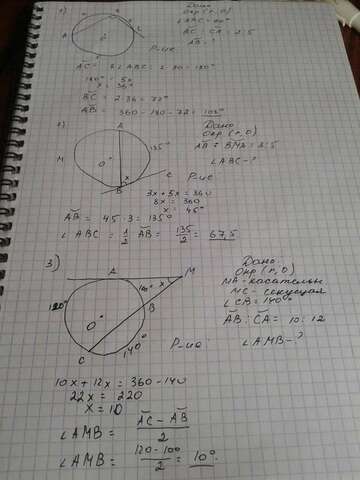 1)
Дано
Окр (r, O)
∠ABC = 90°
A
B
C
O
AB - ?
Р-ие
180° = 5x
x = 36°
BC = 2·36 = 72°
AB = 360 - 180 - 72 = 108°
2)
Дано
Окр (r, O)
A
M
135°
O
B
x
C
∠ABC - ?
Р-ие
3x + 5x = 360
8x = 360
x = 45°
AB = 45·3 = 135°
∠ABC = 1/2 AB = 135/2 = 67,5
3)
Дано:
Окр (r, O)
MA - касательн
MC - секущая
∠CB = 140°
AB : CA = 10 : 12
∠AMB - ?
A
M
x
B
120°
O
C
140°
Р-ие
10x + 12x = 360 - 140
22x = 220
x = 10
∠AMB = (AC - AB)/2
∠AMB = (120 - 100)/2 = 10°